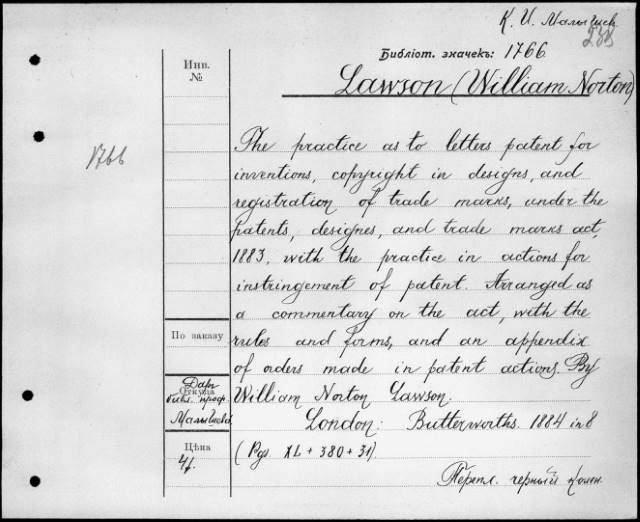 К. И. Малышев
238
Библіот. значекъ: 1766
Инв.
№
Lawson (William Norton)
1766
The practice as to letters patent for
inventions, copyright in designs, and
registration of trade marks, under the
patents, designes, and trade marks act,
1883, with the practice in actions for
instringement of patent. Arranged as
a commentary on the act, with the
rules and forms, and an appendix
of orders made in patent actions. By
William Norton Lawson.
London: Butterworths. 1884 in 8
( Pgs. XL + 380 + 31)
По заказу
Откуда
Даръ
библ. проф.
Малышева
Цѣна
4 р.
Перепл. черный